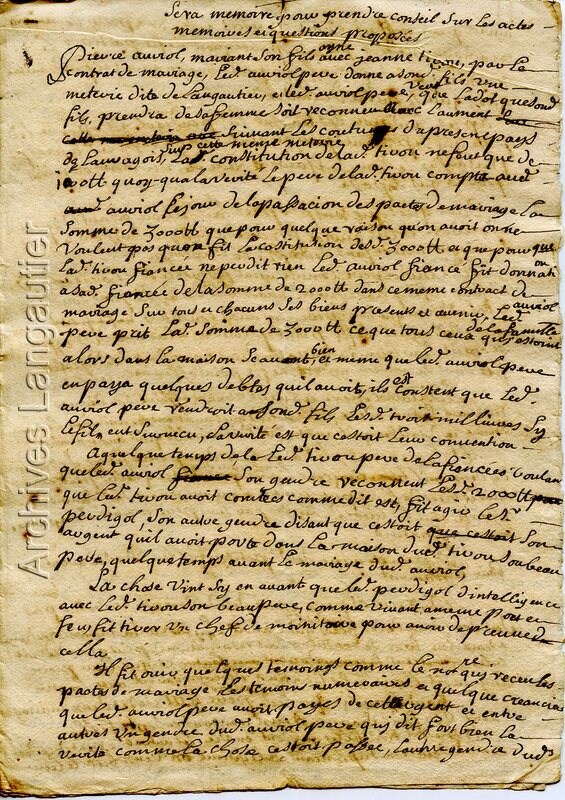 Sera memoire pour prendre conseil sur les actes
memoires et questions proposees
Pierre auriol, mariant son fils avec jeanne tivou, par le
contrat de mariage, led. auriol pere donne a sond. fils une
meterie dite de Langautier, et led. auriol pere, que la dot que sond
fils, prendra de sa femme soit reconneu
suivant les coutumes du pays
de Lauragois, sur cette meme meterie La constitution de lad. tivou ne fout que de
quoy-qua la verite le pere de lad. tivou compta aud.
auriol le jour de la passacion des pactes de mariage la
somme de 3000tt que pour quelque raison qu'on avoit on ne
voulent pas quon fit la costitusion desd. 3000tt et que pour que
lad. tivou fiancée ne perdit rien led. auriol fiance fit donnation
a sad. fiancée de la somme de 2000tt dans ce meme contract de
mariage sur tous et chacuns ses biens presents et avenir, Led. auriol
pere prit lad. somme de 3000tt ce que tous ceux de la famille qui estoint
alors dans la maison scavent bien, et mime que led. auriol pere
en paya quelques debtes quil avoit, ils est constent que led.
auriol pere rendroit a sond. fils lesd. trois mil livres sy
le fil eut survecu, la verité est que cestoit leur convention.
A quelque temps de la led. tivou pere de la fiancée voulan
que led. auriol son gendre reconneut lesd. 2000tt
que led. tivou avoit contées comme dit est, fit agir le sr
perdigol, son autre gendre disant que cestoit son
argent quil avoit porté dans la maison dud. tivou son beau
pere, quelque temps avant le mariage dud. auriol,
La chose vint sy en avant que led. perdigol d'intelligence
avec led. tivou son beau pere, comme vivant a meme pot et
feu, fit tirer un chef de monitoire pour avoir de preuve de
cella
Il fit ouir quelques temoings comme le nore qui receu les
pactes de mariage les temoins numeraires et quelque creancies
que led. auriol pere avoit payés de cet argent et entre
autres un gendre dud. auriol pere qui dit fort bien la
verité comme la chose cestoit passée, lautre gendre dud.
Archives Langautier